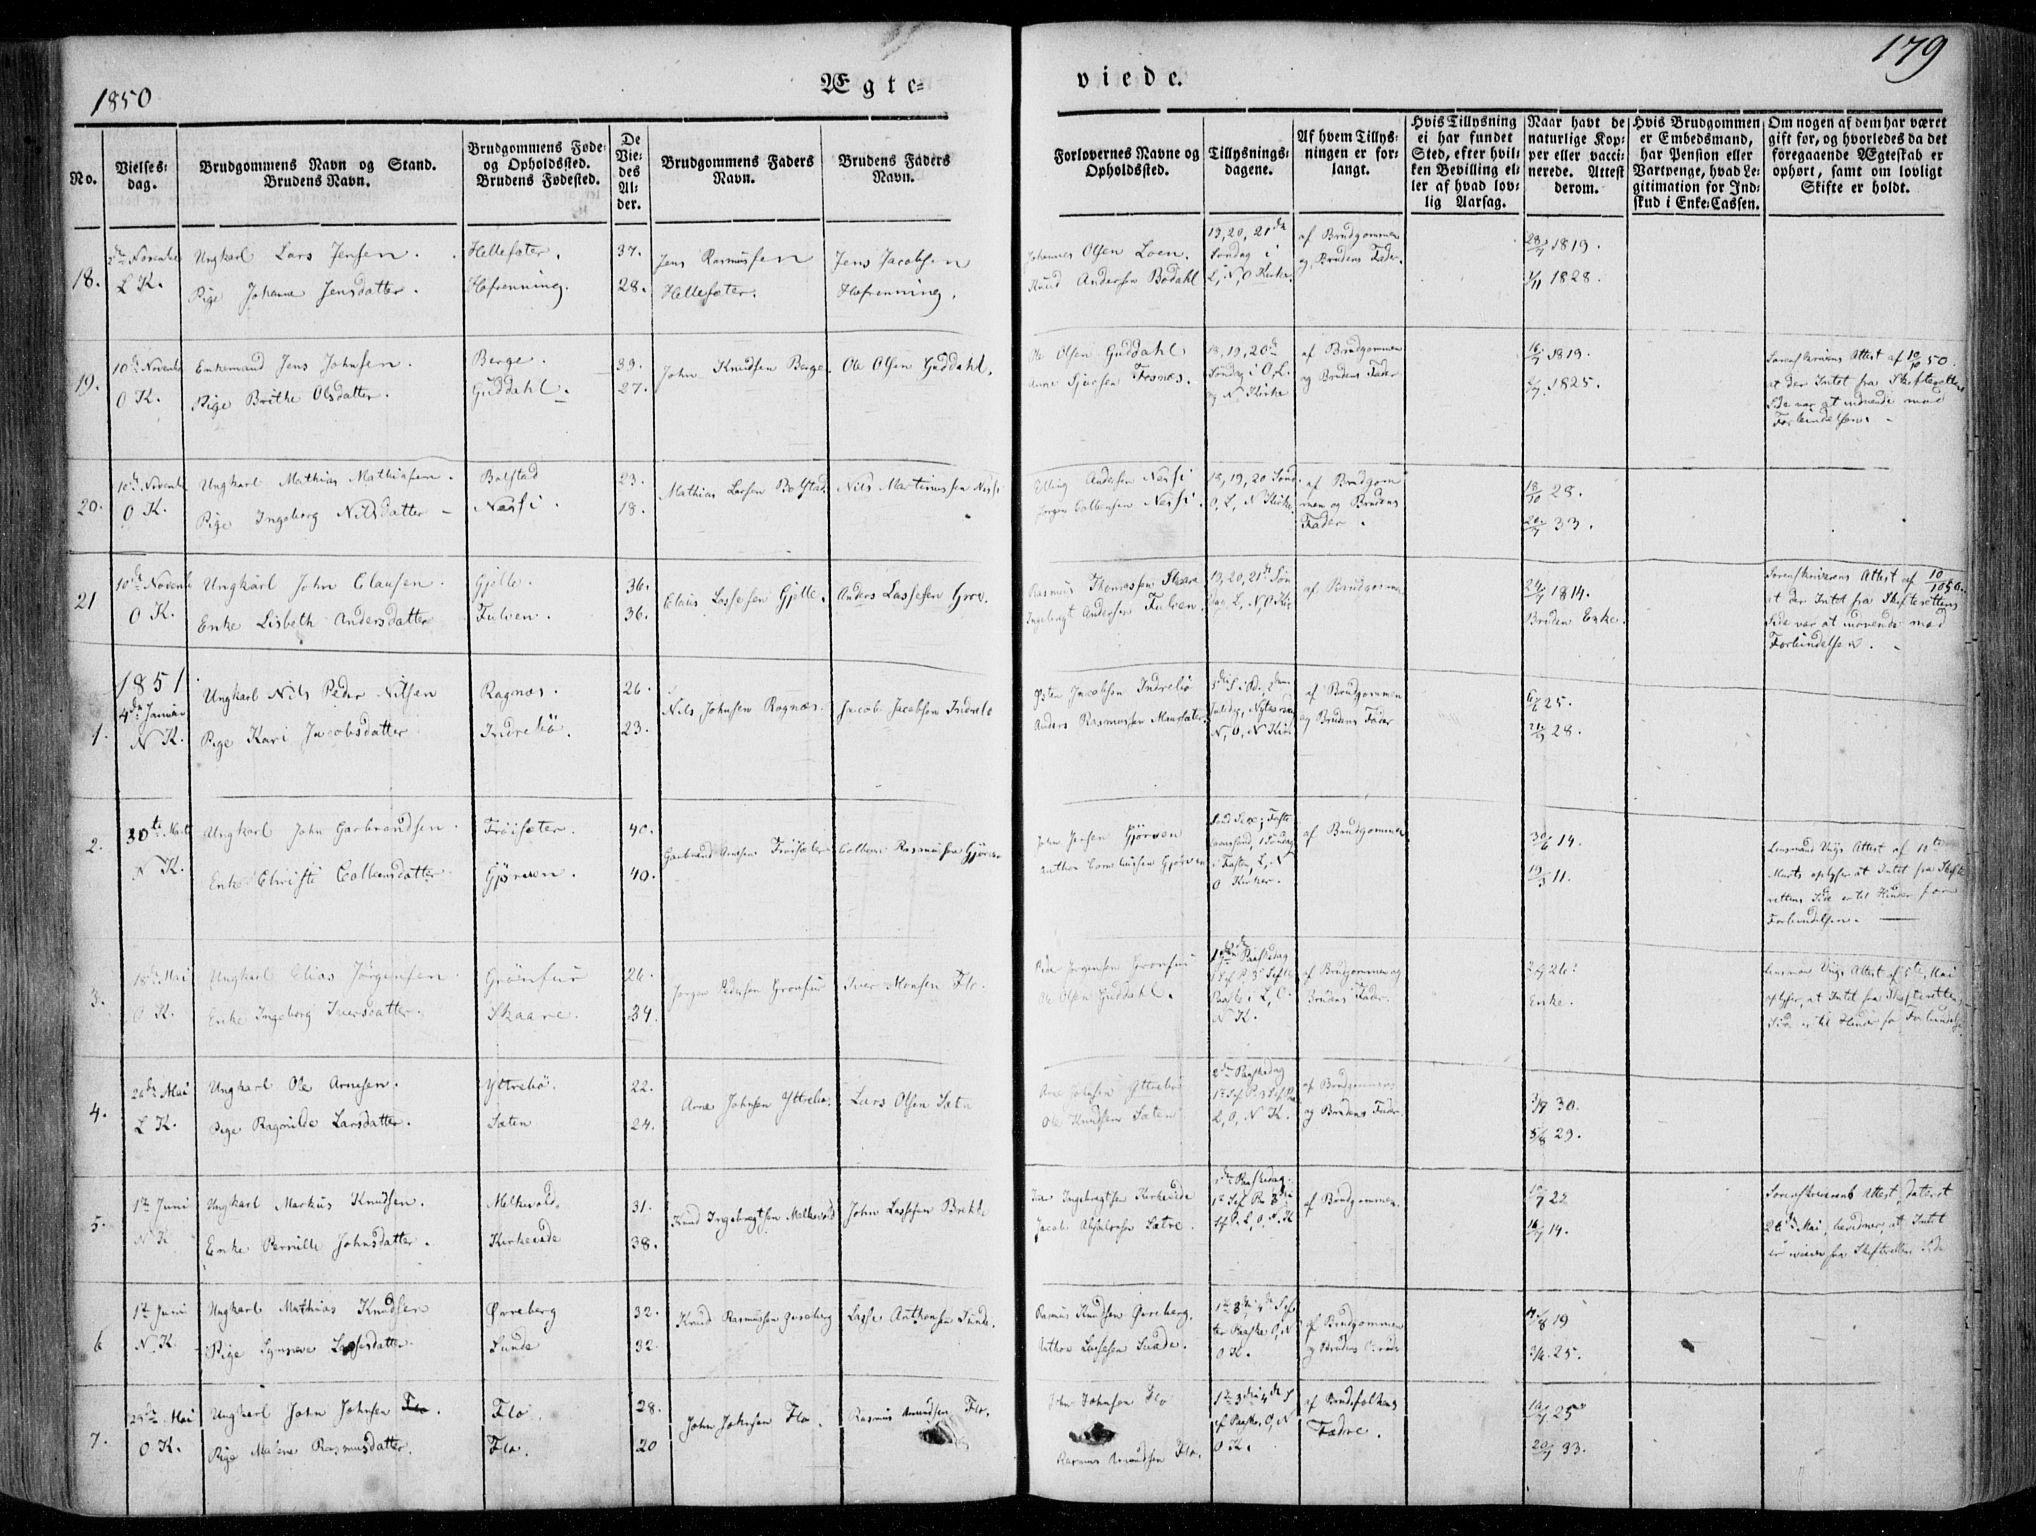 1850
Ægte-
viede.
179
No.
Vielses-
dag.
Brudgommens Navn og Stand.
Brudens Navn.
Brudgommens Føde-
og Opholdssted.
Brudens Fødested.
De
Vie-
des
Al-
der.
Brudgommens Faders
Navn.
Brudens Faders
Navn.
Forlovernes Navne og
Opholdssted.
Tillysnings-
dagene.
Af hvem Tillys-
ningen er for-
langt.
Hvis Tillysning
ei har fundet
Sted, efter hvil-
ken Bevilling el-
ler af hvad lov-
lig Aarsag.
Naar havt de
naturlige Kop-
per eller vacci-
nerede. Attest
derom.
Hvis Brudgommen
er Embedsmand,
har Pension eller
Vartpenge, hvad Le-
gitimation for Ind-
skud i Enke-Cassen.
Om nogen af dem har været
gift før, og hvorledes da det
foregaaende Ægteskab er
ophørt, samt om lovligt
Skifte er holdt.
18.
L K.
Ungkarl Lars Jensen.
Pige Johanne Jensdatter.
Hellesæter.
Hafrenning.
37.
28.
Jens Rasmussen
Hellesæter.
Jens Jacobsen
Hafrenning.
Johannes Olsen Loen.
Knud Andersen Bødahl
19, 20, 21de
Søndag i
L, N, O Kirke.
af Brudgommen
og Brudens Fader.
28/7 1819.
1828.
19.
10de Novenb
O K.
Enkemand Jens Johnsen.
Pige Brithe Olsdatter.
Berge.
Guddahl.
39.
27.
John Knudsen Berge.
Ole Olsen Guddahl.
Ole Olsen Guddahl
18, 19, 20de
Søndag i O, L.
og N Kirke
af Brudgommen
og Brudens Fader
16/7 1819.
1825.
Sorenskriverens Attest af 10/10 50.
at der Intet fra Skifterettens
Side var at indvende mod
Forbindelsen.
20.
10de Novenb
O K.
Ungkarl Mathias Mathiasen.
Pige Ingeborg Nilsdatter
Bolstad
Nessi.
23.
18.
Mathias Larsen Bolstad.
Nils Martinussen Nessi
Elling Andersen Nessi
18, 19, 20 Sønd
O, L, N Kirke.
af Brudgom
men og Brudens
Fader.
18/10 28.
20/7 33.
21
10de Novenb
O K.
Ungkarl John Clausen.
Enke Lisbeth Andersdatter
Gjelle.
Fulven.
36.
36.
Claus Lassesen Gjelle.
Anders Lassesen Grov.
Rasmus Thomassen Skaare
Ingebrigt Andersen Fulven.
19, 20, 21de Søn
dag L, N, O Kir
af Brudgomm
24/7 1814.
Bruden Enke.
Sorenskriverens Attest af 10/10 50.
at der Intet fra Skifterettens
Side var at indvende mod
Forbindelsen.
1851.
1.
4de Januar
N K.
Ungkarl Nils Peder Nilsen
Pige Kari Jacobsdatter
Ragnæs.
Indrebö.
26.
23.
Nils Johnsen Ragnæs.
Jacob Jacobsen Indrebö
Østen Jacobsen Indrebö
Anders Rasmussen
N, O, N Kir
af Brudgommen
og Brudens Fader
25.
28.
2.
30te Marts
N K.
Ungkarl John Garbrandsen.
Enke Christi Colbensdatter
Tröisæter.
Gjörven.
40.
40.
Garbrand Tröisæter
Colbein Rasmussen Gjörven
John Jensen Gjörven
Anthon Cornelíussen Gjörven
i Fasten, L, N
O Kirker.
af Brudgommen
30/6 14.
19/3 11.
Lensmand Attest af 11te
Marts oplyser at Intet fra Skifte
rettens Side er til Hinder for
Forbindelsen.
3.
18de Mai
O K.
Ungkarl Elias Jörgensen
Enke Ingeborg Iversdatter.
Grönfur
Skaare.
26.
34.
Jörgen Pedersen Gronfur
Iver Monsen Flo.
Peder Jörgensen Gronfur
Ole Olsen Guddahl.
N K.
af Brudgommen og
Brudens Fader.
26.
Enke.
Attest af 5te Mai
oplyser, at Intet fra Skifteretten
Side er til Hinder for Forbindelse
4.
26de Mai
L K.
Ungkarl Ole Arnesen.
Pige Ragnilde Larsdatter.
Yttrebö.
Sæten
22.
24.
Arne Johnsen Yttrebö.
Lars Olsen Sæten
Arne Johnsen Yttrebö
Ole Knudsen Sæten
2den Paaskedag
L, O, N K.
af Brudgommens
og Brudens Fader.
30.
5/8 29.
5.
1te Juni
N K
Ungkarl Markus Knudsen.
Enke Pernille Johnsdatter.
Melkevold.
Kirkeeide
31.
38.
Knud Ingebrigtsen Melkevold
John Lassesen Brekke
Iver Ingebrigtsen Kirkeeide
Jacob Absalonsen Sætre.
af Brudgommen.
22
16/7 14.
Sorenskriverens Attest dateret
26de Mai, bevidner, at Intet
6
1te Juni
N. K
Ungkarl Mathias Knudsen
Pige Synneve Lassesdatter.
Øvreberg
Sunde
32.
32.
Knud Rasmussen Øvreberg
Lasse Anthonsen Sunde.
Rasmus Knudsen Øvreberg.
Anthon Lassesen Sunde.
ter Paaske O, N
O K.
af Brudgommen
19
25.
7.
25de Mai
O K.
Ungkarl John Johnsen Flo.
Pige Malene Rasmusdatter.
Flo.
Flo.
28.
20
John Johnsen Flo.
Rasmus Amundsen Flo.
John Johnsen Flo
Rasmus Amundsen Flo.
O K.
af Brudefolkenes
Fædre.
25
20/7 33.